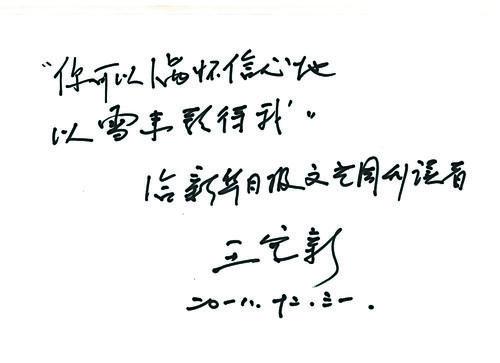 “你可以满怀信心地
以雪来款待我”。
给新华日报文艺周刊读者
王家新
二〇一八.十二.三一.